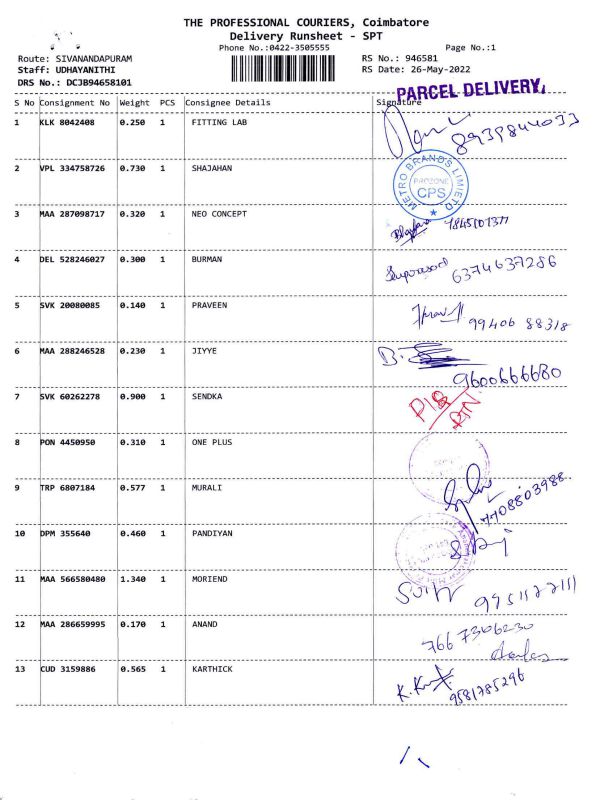 THE PROFESSIONAL COURIERS, Coimbatore
Delivery Runsheet - SPT
Phone No.:0422-3505555
Page No.:1
Route: SIVANANDAPURAM
RS No.: 946581
Staff: UDHAYANITHI
RS Date: 26-May-2022
DRS No.: DCJB94658101
PARCEL DELIVERY.
S No Consignment No Weight PCS Consignee Details Signature
1 KLK 8042408 0.250 1 FITTING LAB
8939844033
2 VPL 334758726 0.730 1 SHAJAHAN
METRO BRANDS LIMIETD
PROZONE
CPS
3 MAA 287098717 0.320 1 NEO CONCEPT
4 DEL 528246027 0.300 1 BURMAN
6374637286
5 SVK 20080085 0.140 1 PRAVEEN
99406 88318
6 MAA 288246528 0.230 1 JIYYE
9600666680
7 SVK 60262278 0.900 1 SENDKA
RTN
8 PON 4450950 0.310 1 ONE PLUS
9 TRP 6807184 0.577 1 MURALI
7708803988
10 DPM 355640 0.460 1 PANDIYAN
11 MAA 566580480 1.340 1 MORIEND
12 MAA 286659995 0.170 1 ANAND
7667306230
13 CUD 3159886 0.565 1 KARTHICK
9581785296